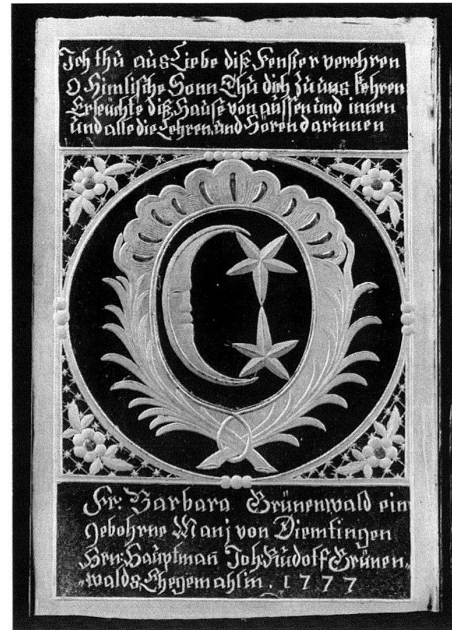 Ich thù aùs Liebe diß Fenster verehren
O Himlische Sonn Thù dich zù ùns kehren
Erleùchte diß Haùse von aùssen ùnd innen
ùnd alle die Lehren ùnd Hören darinnen
Fr: Barbara Grünenwald ein
gebohrne Manj von Diemtingen
Hrn: Haùptman̄ Joh: Rùdolf Grünen„
„walds Ehegemahlin. 1777